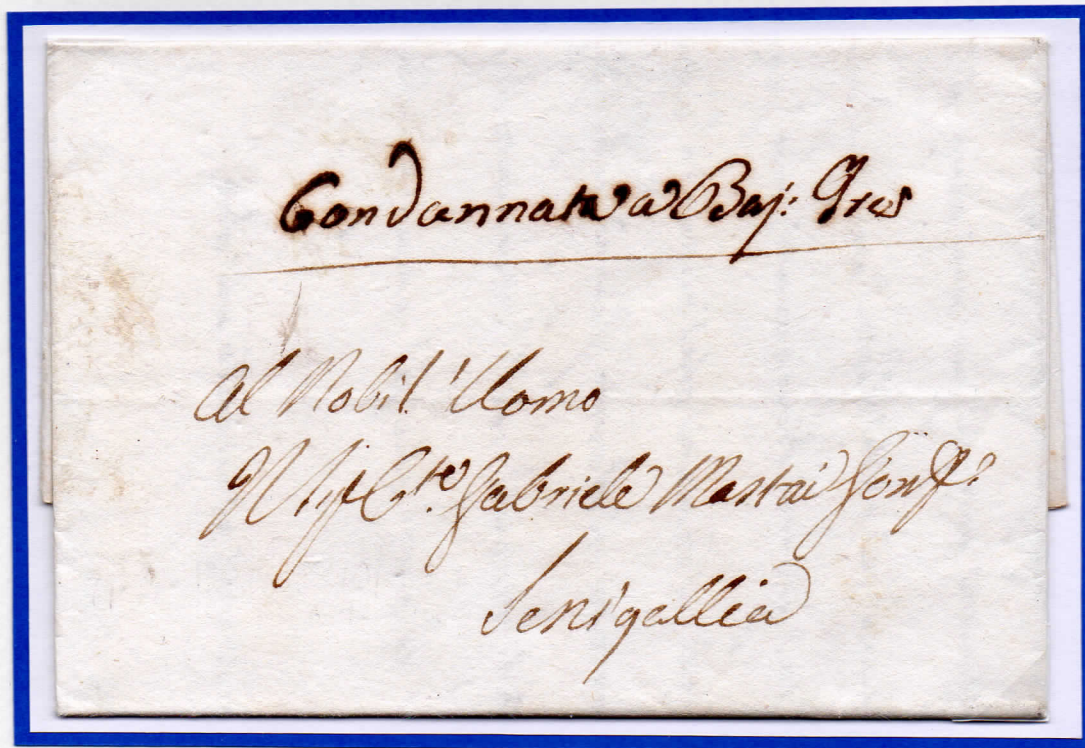 Condannata a Baj: Tres
Al Nobil' Uomo
Il Sig C.te Gabriele Mastai
Senigallia